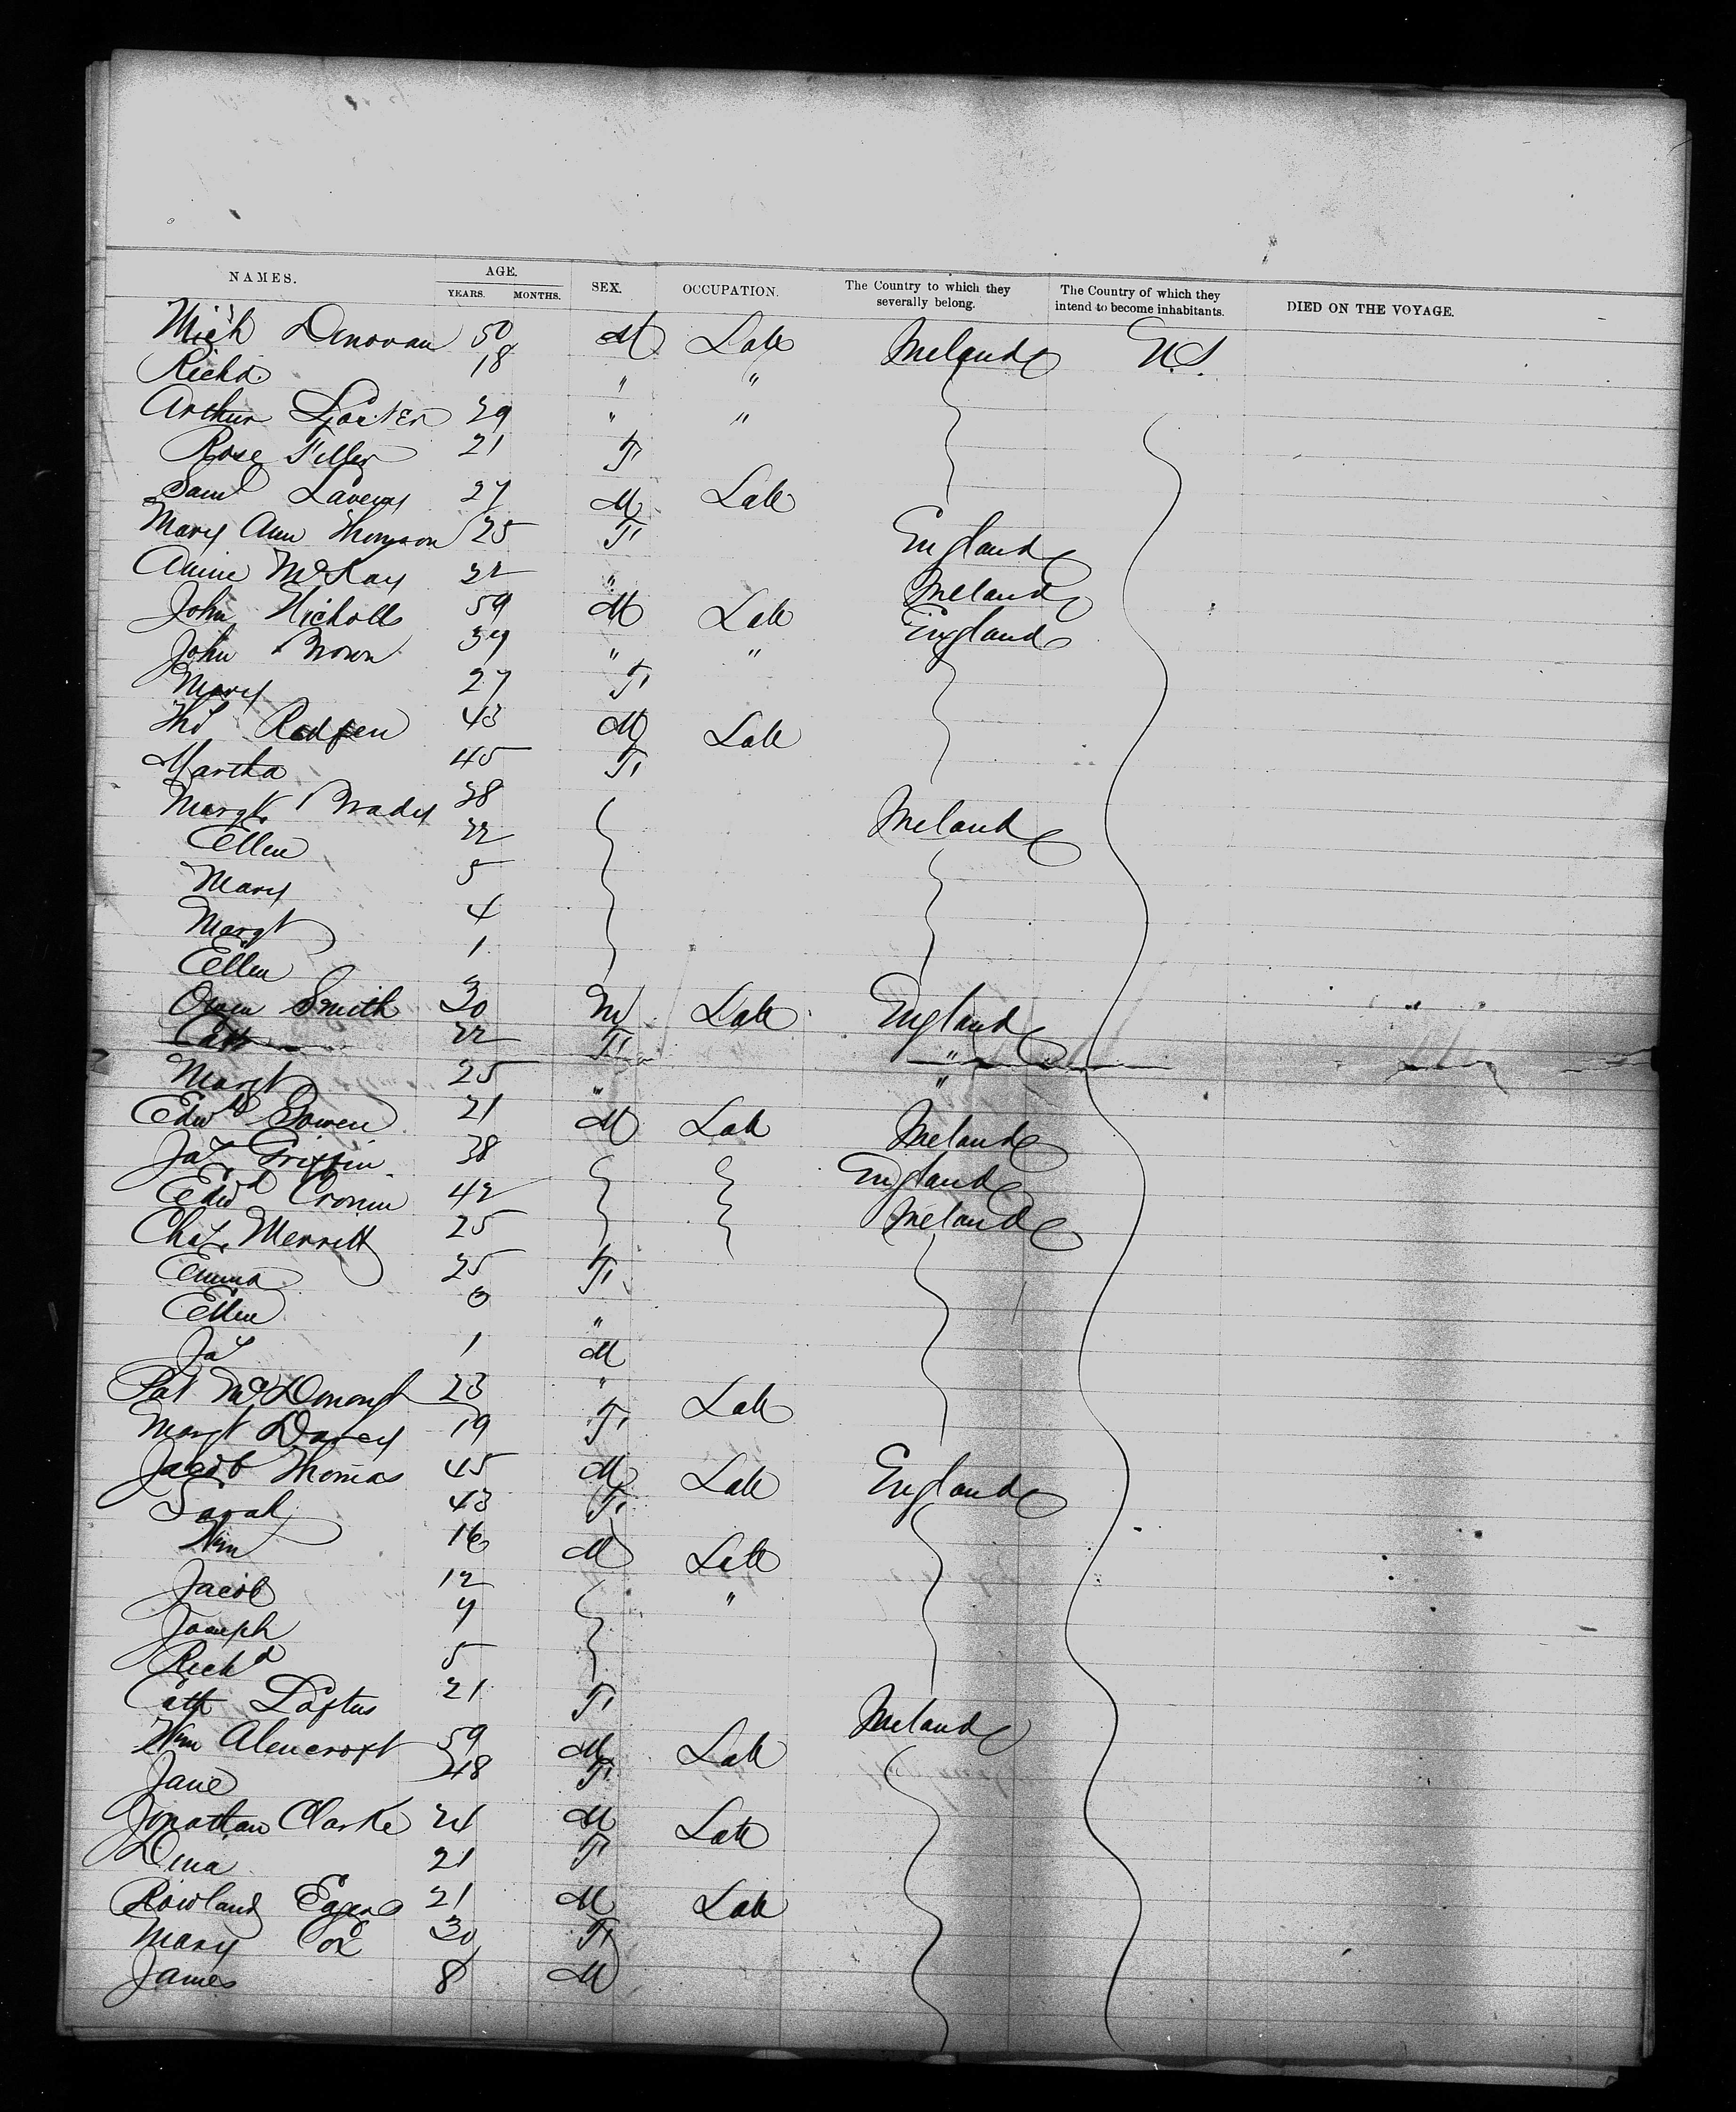 NAMES. AGE. YEARS. MONTHS. SEX. OCCUPATION. The Country to which they severally belong. The Country of which they intend to become inhabitants. DIED ON THE VOYAGE.
Mich Donovan 50 M Lab Ireland U.S.
Richd 18 " "
Arthur 29 " "
Rose Tiller 21 F
Saml Lavery 27 M Lab
Mary Ann Thomson 25 F England
Annie McKay 22 " Ireland
John Nicholls 59 M Lab England
John Brown 39 " "
Mary 27 F
Ths Redfen 43 M Lab
Martha 45 F
Margt Brady 38 Ireland
Ellen 22
Mary 5
Margt 4
Ellen 1
Owen Smith 30 M Lab England
Cath 22 F "
Margt 25 " "
Edwd Bowen 21 M Lab Ireland
Jas Griffin 38 England
Edwd Cronin 42 Ireland
Chas Merritt 25
Emma 25 F
Ellen 3 "
Jas 1 M
Pat McDonough 23 " Lab
Margt Davey 19 F
Jacob Thomas 45 M Lab England
Sarah 43 F
Wm 16 M Lab
Jacob 12 "
Joseph 9
Richd 5
Cath Loftus 21 F Ireland
Wm Alencroft 59 M Lab
Jane 48 F
Jonathan Clarke 24 M Lab
Dina 21 F
Rowland 21 M Lab
Mary Cox 30 F
James 8 M